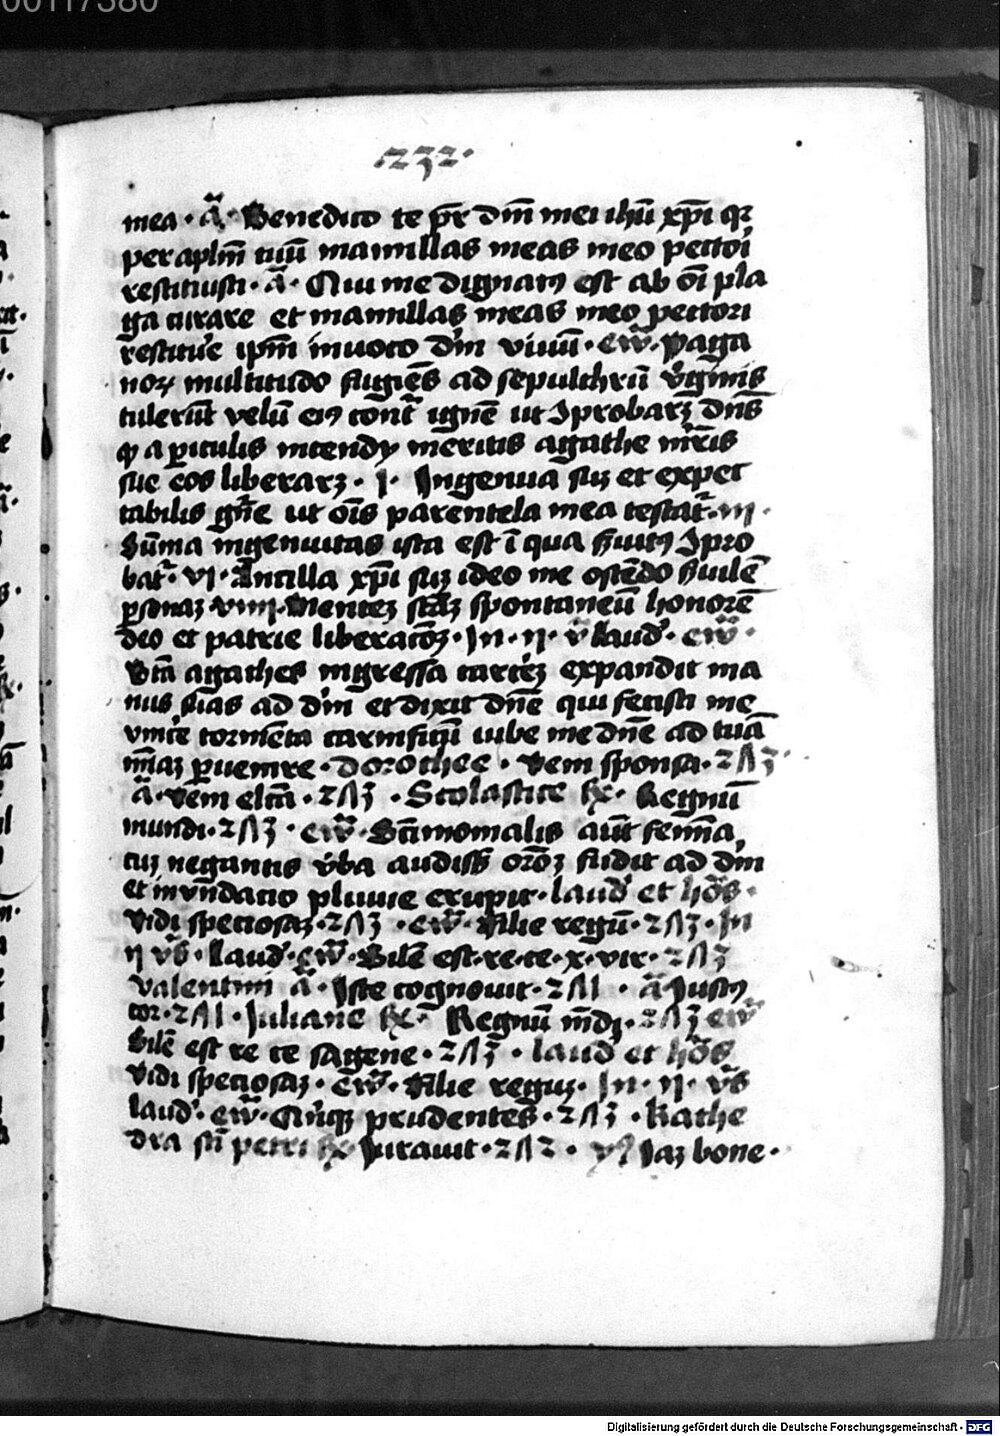 00117380
.232.
mea · ā · Benedico te pr̄ dn̄i mei ihū xp̄i qr
per apl̄m tuū mamillas meas meo pectori
restituisti · ā · Qui me dignatꝰ est ab oī pla
ga curare et mamillas meas meo pectori
restitu'e ip̄m inuoco d'm viuū · ew̄ · paga
norꝝ multitudo fugiēs ad sepulchrū v̄ginis
tulerūt velū eiꝰ cont̄ ignē ut ꝯprobarꝫ dn̄s
qꝫ a p̱iculis incendij meritis agathe mr̄is
sue eos liberarꝫ · j · Ingenua suꝫ et expec
tabilis gn̄e ut oīs parentela mea testat᷑ · iij ·
Sūma ingenuitas ista est ī qua ẜuitꝰ ꝯpro
bat᷑ · vi · Ancilla xp̄i suꝫ ideo me ostēdo ẜuilē
p̱sonaꝫ · viiij · Menteꝫ sc̄aꝫ spontaneū honorē
deo et patrie liberacōꝫ · In · ij · v̄ laud' · ew̄ ·
Bt̄a agathes ingressa carceꝫ expandit ma
nus suas ad d'm et dixit dn̄e qui fecisti me
vinc'e tormēta carnificū iube me dn̄e ad tuā
mīaꝫ p̱uenire · dorothee · Veni sponsa · 2Λꝫ
ā · Veni elc̄a · 2Λꝫ · Scolastice · Regnū
mundi · 2Λꝫ · ew̄ · Sc̄imonialis aūt femīa
cuꝫ negantis v̄ba audisẜ orōꝫ fudit ad d'm
et invndacio pluuie erupit · laud' et hōs ·
Vidi speciosaꝫ · 2Λꝫ · ew̄ · Filie regū · 2Λꝫ · In
ij v̄s · laud' · ew̄ · Silē est · re · ce · x · vir · 2Λꝫ
Valentini ā · Iste cognouit · 2Λ1 · ā Iustꝰ
cor · 2Λ1 · Juliane · Regnū mūdi · 2Λꝫ ew̄
Silē est re ce sagene · 2Λꝫ · laud' et hōs
Vidi speciosaꝫ · ew̄ · Filie reguꝫ · In · ij · v̄s
laud' · ew̄ · Quīqꝫ prudentes · 2Λꝫ · Kathe
dra sc̄i petri Jurauit · 2Λ2 · Iaꝫ bone ·
Digitalisierung gefördert durch die Deutsche Forschungsgemeinschaft - DFG